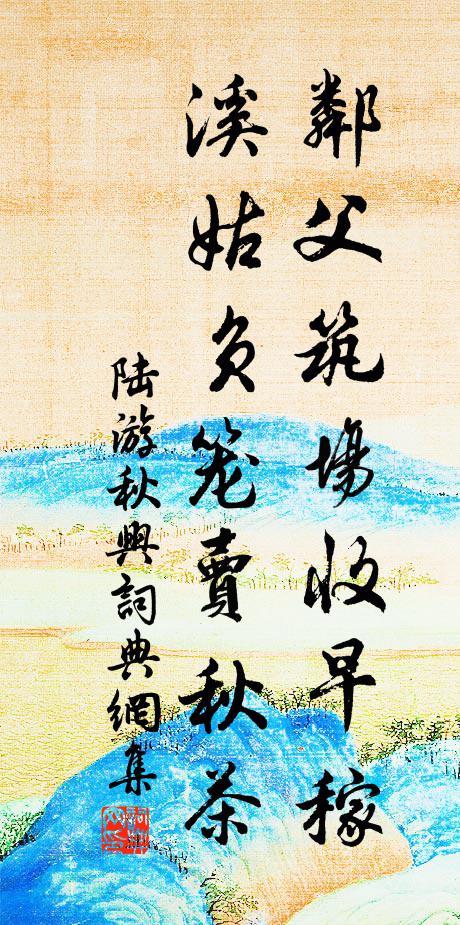 鄰父筑場收早稼
溪姑負笼賣秋茶
陆游秋興詞典網集